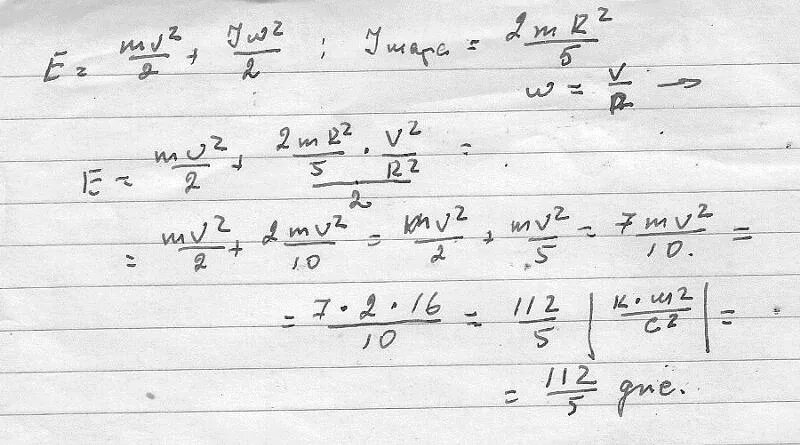 E = mv²/2 + Jw²/2 ; J шара = 2mR²/5
w = V/R →
E = mv²/2 + (2mR²/5 · V²/R²)/2 =
= mv²/2 + 2mv²/10 = mv²/2 + mv²/5 = 7mv²/10 =
= 7·2·16/10 = 112/5 | к·м²/c² | =
= 112/5 дже.